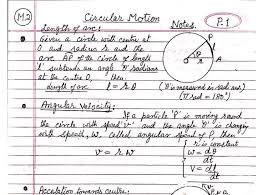 M2 Circular Motion Notes. P.1
Length of arc:
Given a circle with centre at
O and radius r and the
arc AP of the circle of length
l subtends an angle θ radians
at the centre O, then
length of arc l = rθ (θ is measured in radians)
(π rad = 180°)
P
r
θ
O
A
Angular Velocity:
If a particle 'P' is moving round
the circle with speed 'v' and the angle θ is changing
with speed w, called angular speed of P then
v = r w
r is constant
w = dθ/dt
V = dl/dt
Accelation towards centre: